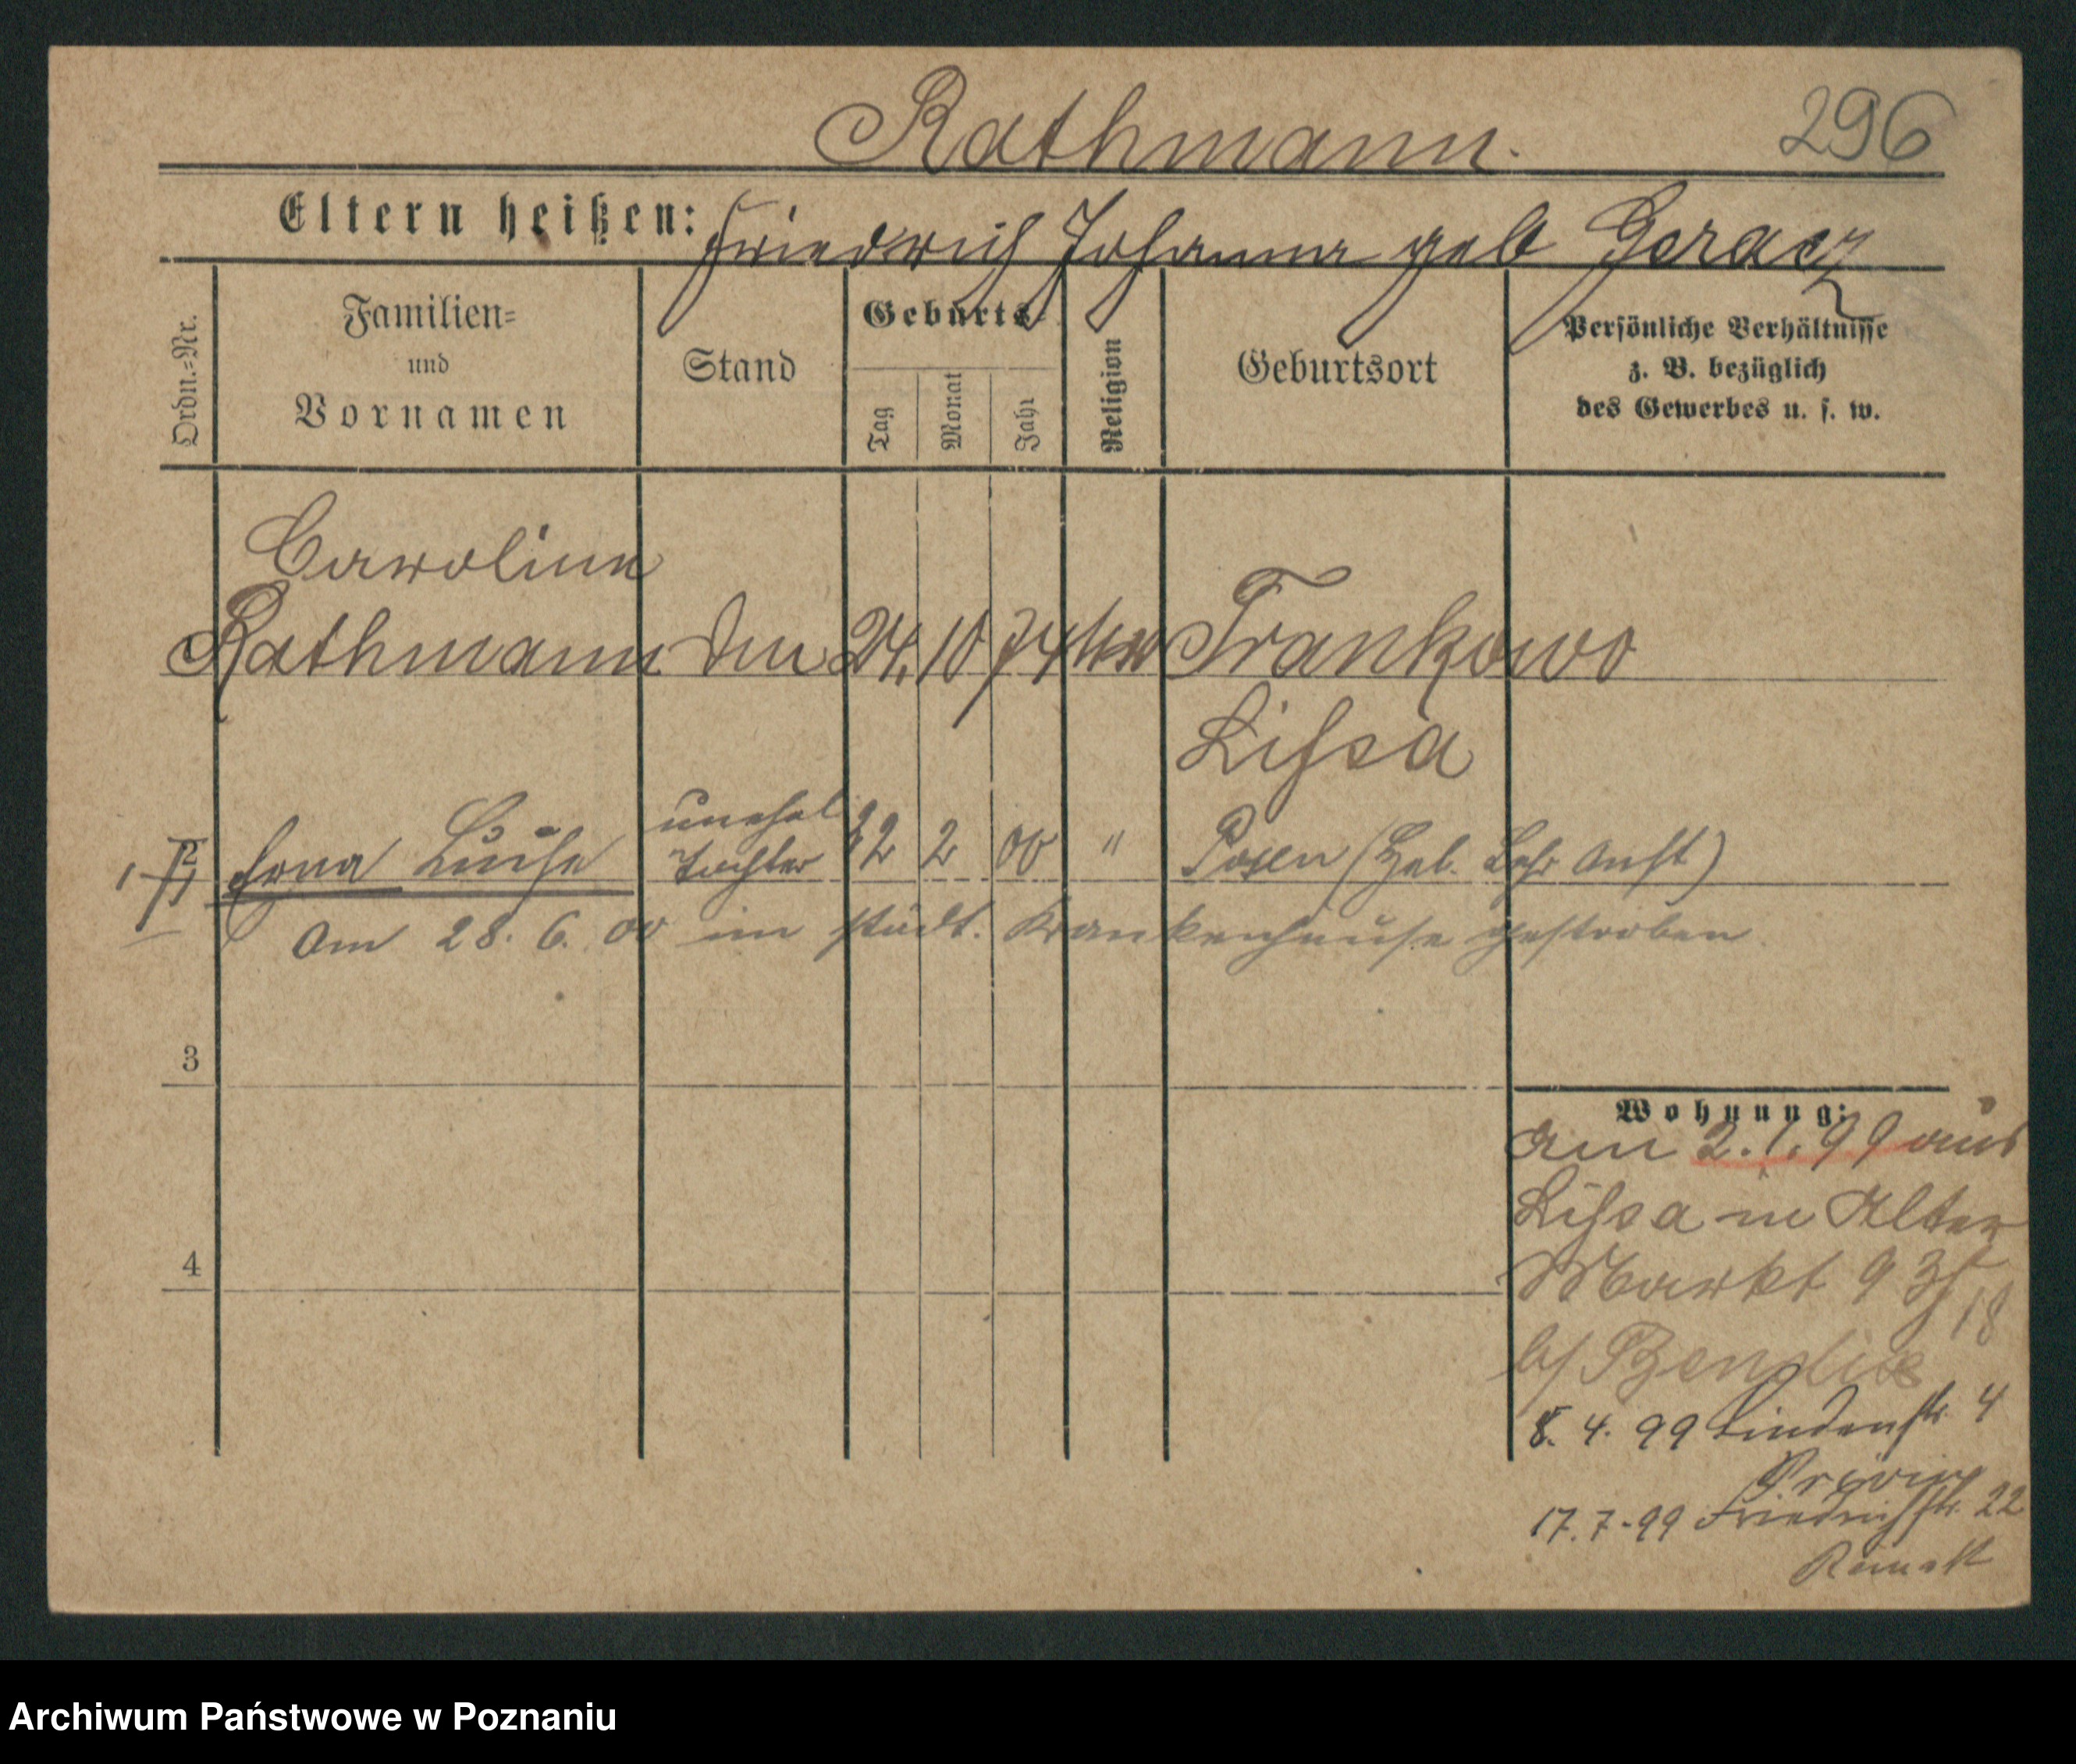 Rathmann.
296
Eltern heißen: Friedrich Johanna geb Geracz
Ordn.=Nr.
Familien=
und
Vornamen
Stand
Geburts=
Tag
Monat
Jahr
Religion
Geburtsort
Persönliche Verhältnisse
z. B. bezüglich
des Gewerbes u. s. w.
Caroline
Rathmann 24. 10 74 Frankowo
Lissa
2 Erna Luise unehel Tochter 22 2 00 " Posen (Heb. Lehr Anst)
Am 28. 6. 00 im städt. Krankenhause gestorben.
3
4
Wohnung:
am 2. 1. 99 aus
Lissa in Alter
Markt 9
18
b/ Bendix
8. 4. 99 Lindenstr. 4
17. 7. 99 Friedrichstr. 22
Archiwum Państwowe w Poznaniu